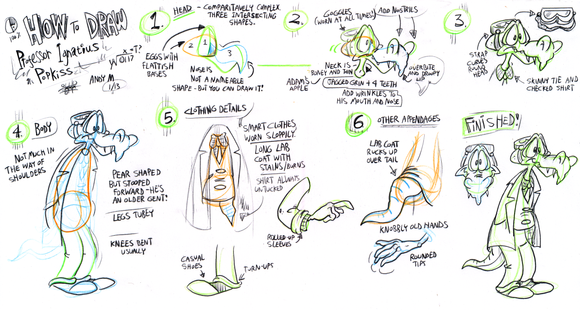 HOW TO DRAW
Professor Ignatius
Popkiss
Andy M
1/13
1. HEAD - COMPARITATELY COMPLEX.
THREE INTERSECTING
SHAPES.
2
1
3
EGGS WITH
FLATTISH
BASES
NOSE IS
NOT A NAMEABLE
SHAPE - BUT YOU CAN DRAW IT!
2.
GOGGLES
(WORN AT ALL TIMES)
ADD NOSTRILS
NECK IS
BONEY AND THIN
ADAM'S
APPLE
SPACED GRIN + 4 TEETH
ADD WRINKLES TO
HIS MOUTH AND NOSE
OVERBITE
AND DROOPY
LIP
3.
STRAP
CURVES
ROUND
HEAD
SKINNY TIE AND
CHECKED SHIRT
4. BODY
NOT MUCH IN
THE WAY OF
SHOULDERS
PEAR SHAPED
BUT STOOPED
FORWARD - HE'S
AN OLDER GENT!
LEGS TUBEY
KNEES BENT
USUALLY
5.
CLOTHING DETAILS
SMART CLOTHES
WORN SLOPPILY.
LONG LAB
COAT WITH
STAINS/BURNS
SHIRT ALWAYS
UNTUCKED
ROLLED-UP
SLEEVES
CASUAL
SHOES
TURN-UPS
6 OTHER APPENDAGES
LAB COAT
RUCKS UP
OVER TAIL
KNOBBLY OLD HANDS
ROUNDED
TIPS
FINISHED!